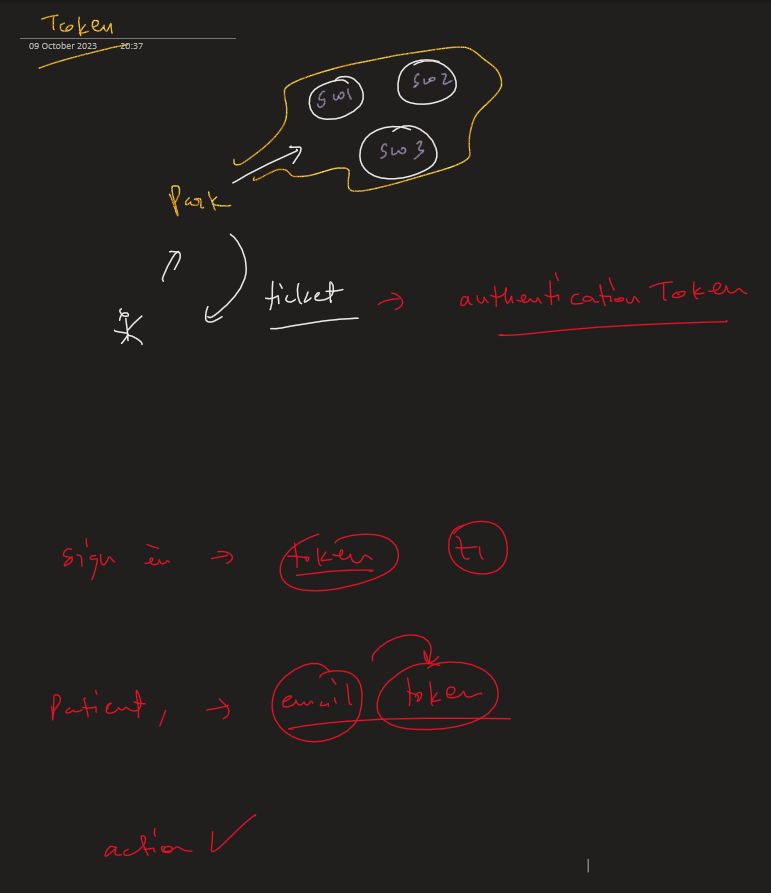 Token
09 October 2023 20:37
sw1 sw2
sw3
Park
ticket → authentication Token
sign in → token t1
Patient, → email token
action ✓